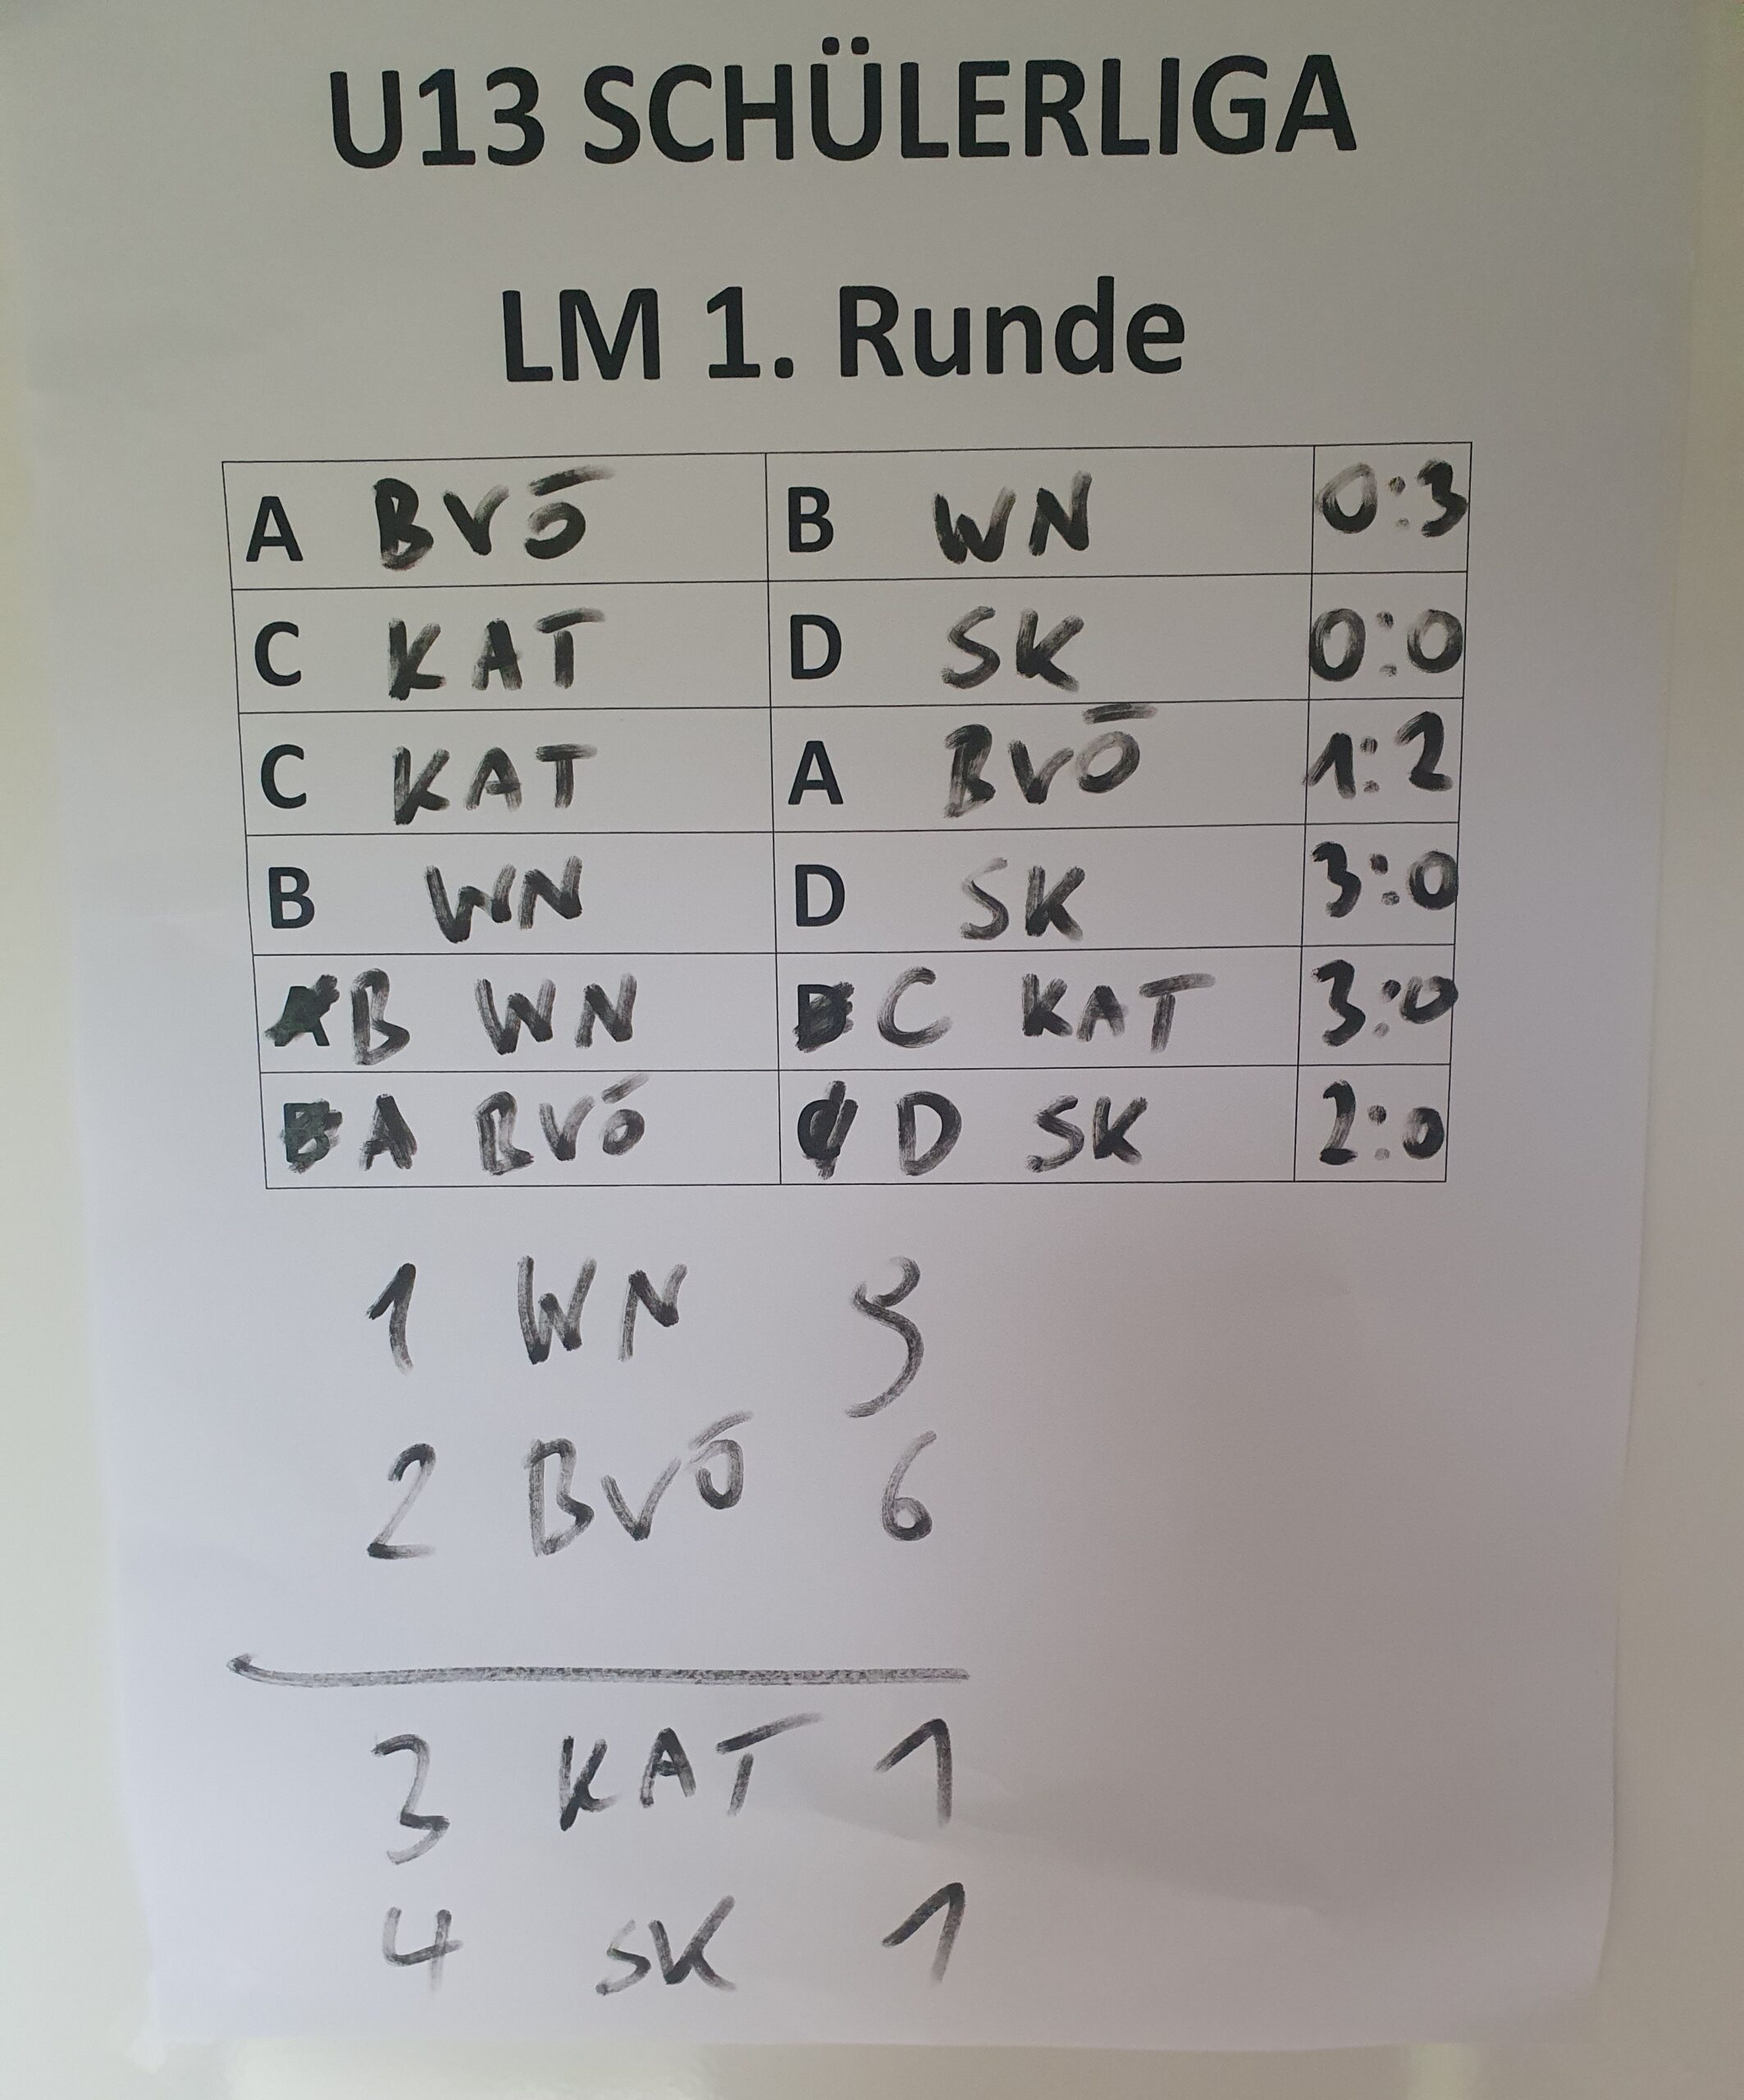 U13 SCHÜLERLIGA
LM 1. Runde
A BVÖ B WN 0:3
C KAT D SK 0:0
C KAT A BVÖ 1:2
B WN D SK 3:0
A B WN D C KAT 3:0
B A BVÖ C D SK 2:0
1 WN 9
2 BVÖ 6
3 KAT 1
4 SK 1